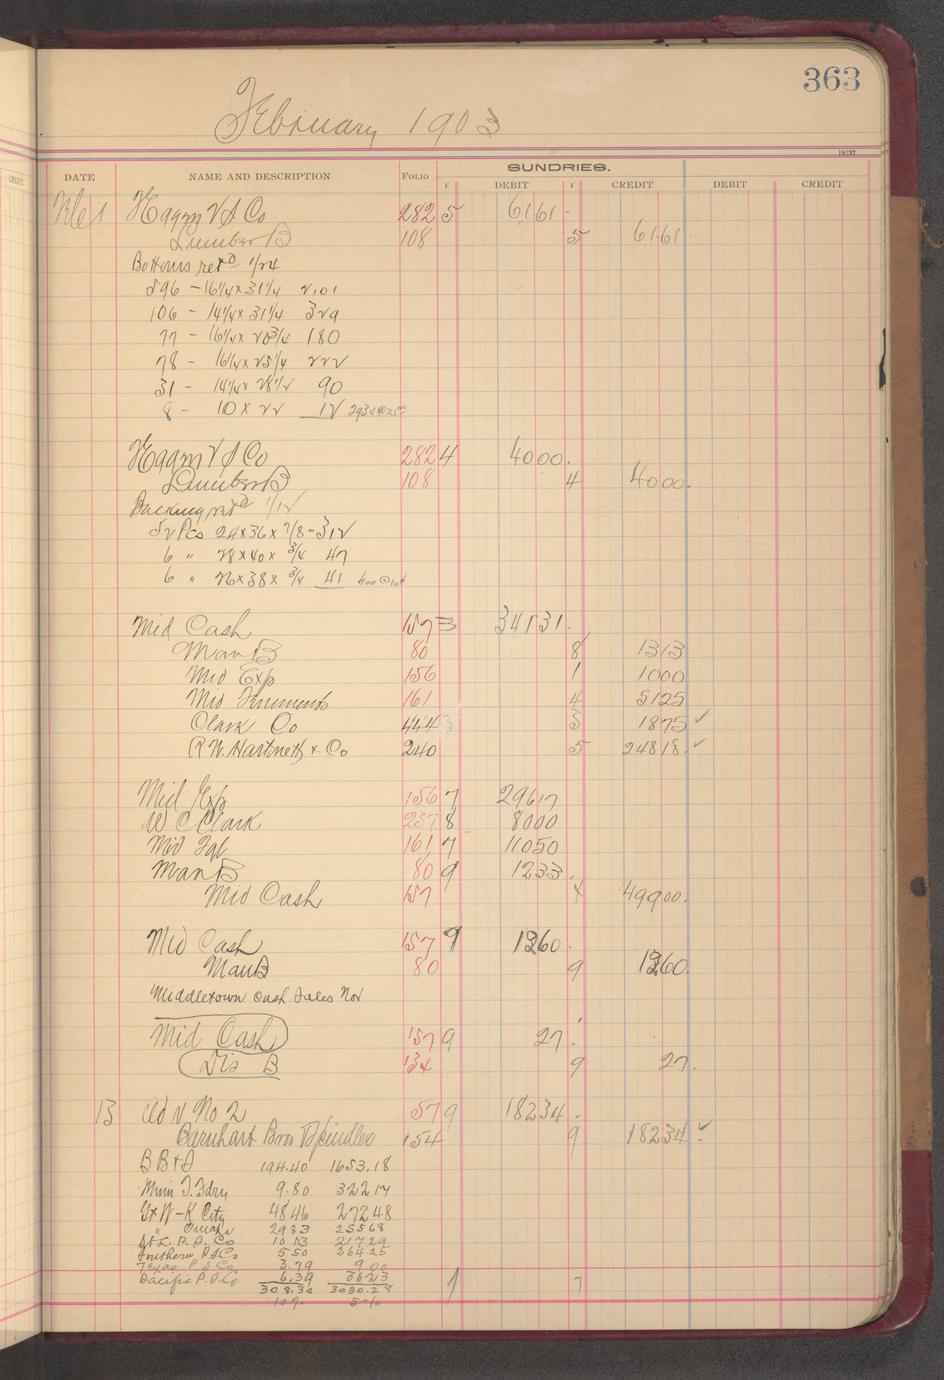 363
February 1903
18737
SUNDRIES.
DATE NAME AND DESCRIPTION FOLIO F DEBIT F CREDIT DEBIT CREDIT
Hagm V S Co 282 5 6161
Lumber B 108 5 6161
Bottoms retd 1/24
596 - 16 1/4 x 31 1/4 2101
106 - 14 1/4 x 31 1/4 329
77 - 16 1/4 x 20 3/4 180
78 - 16 1/4 x 25 1/4 222
31 - 14 1/4 x 28 1/2 90
8 - 10 x 22 12 2934 @
Hagm V S Co 282 4 4000
Lumber B 108 4 4000
Backing retd 1/12
52 Pcs 24 x 36 x 7/8 - 312
6 " 28 x 40 x 3/4 47
6 " 26 x 38 x 3/4 41 400 @ 10¢
Mid Cash 157 3 34131
Man B 80 8 1313
Mid Exp 156 1 1000
Mid 161 4 5125
Clark Co 444 3 3 1875 ✓
R W. Hartnett & Co 240 5 24818 ✓
Mid Exp 156 7 29617
W C Clark 237 8 8000
Mid 161 7 11050
Man B 80 9 1233
Mid Cash 157 x 49900
Mid Cash 157 9 1360
Man B 80 9 1360
Middletown Cash Sales Nov
Mid Cash 157 9 27
Dis B 134 9 27
13 No 2 57 9 18234
Barnhart Bros & Spindler 154 9 18234 ✓
B B & S 194.40 1653.18
Minn T. Fdry 9.80 322 17
G W - K City 48 46 272 48
" Omaha 29 83 255 68
St L P. S. Co 10 13 217 29
Southern P S Co 5 50 264.25
Texas P S Co 3.79 9 00
Pacific P. S Co 6.39 36 23
308.30 3030.28
10% 5%
1 7